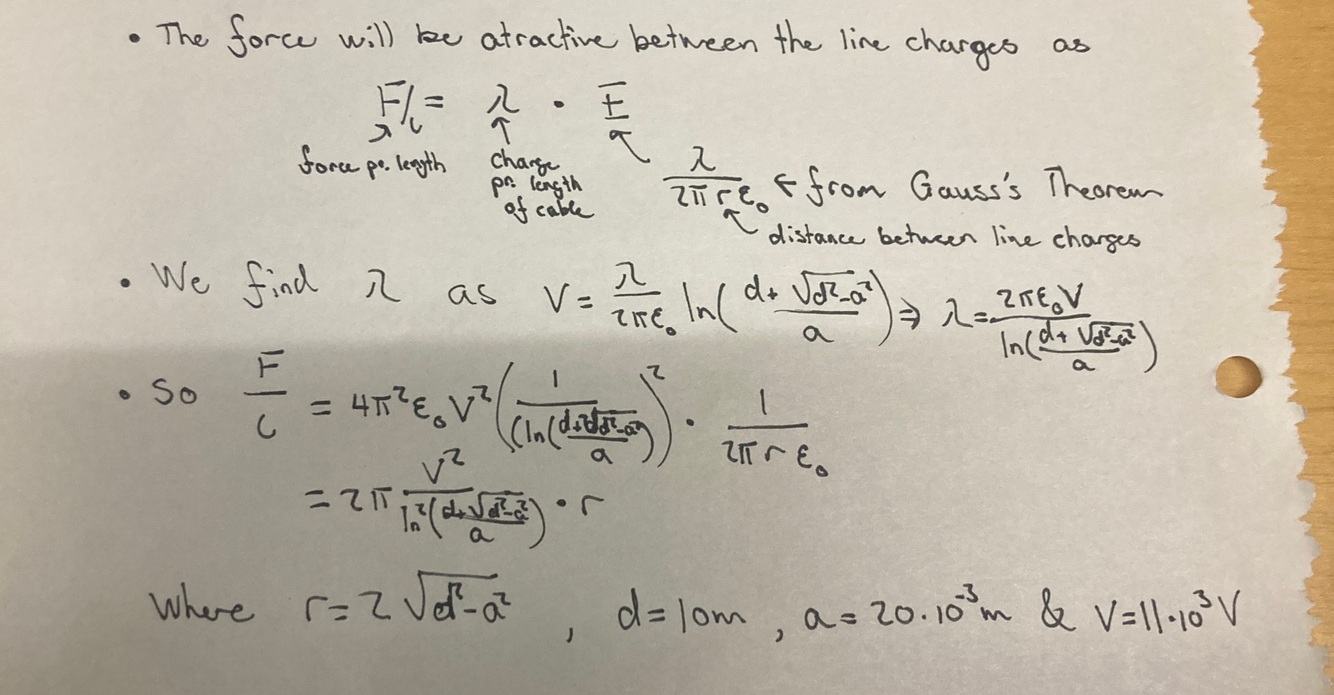 • The force will be atractive between the line charges as
F/L = λ · E
force pr. length
charge pr. length of cable
λ / (2π r ε₀) ← from Gauss's Theorem
distance between line charges
• We find λ as V = λ/(2πε₀) ln( (d + √(d²-a²))/a ) ⇒ λ = 2πε₀V / ln( (d + √(d²-a²))/a )
• So F/L = 4π² ε₀ V² ( 1 / (ln( (d+√(d²-a²))/a )) )² · 1/(2π r ε₀)
= 2π V² / ln²( (d+√(d²-a²))/a ) · r
Where r = 2 √(d²-a²) , d = 10m , a = 20·10⁻³m & V = 11·10³ V